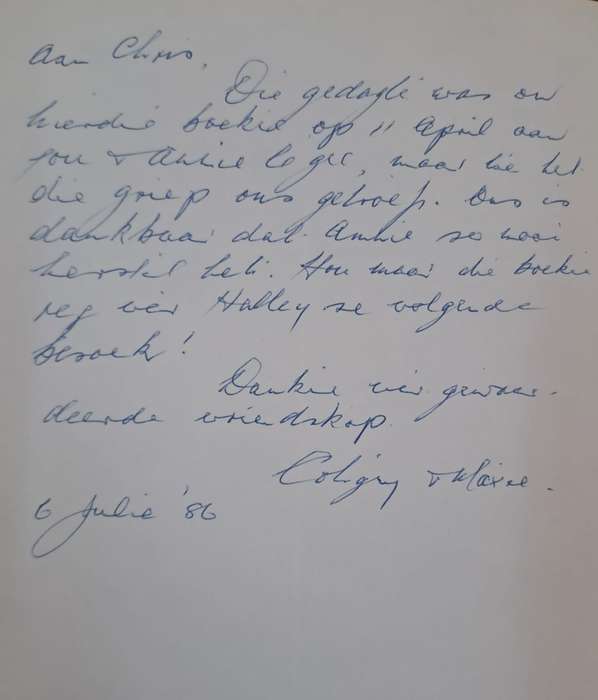 Aan Chris,
Die gedagte was om
hierdie boekie op 11 April aan
jou + Annie te gee, maar toe het
die griep ons getref. Ons is
dankbaar dat Annie so mooi
herstel het. Hou maar die boekie
reg vir Halley se volgende
besoek!
Dankie vir gewaar-
deerde vriendskap.
Coligny +
6 Julie '86